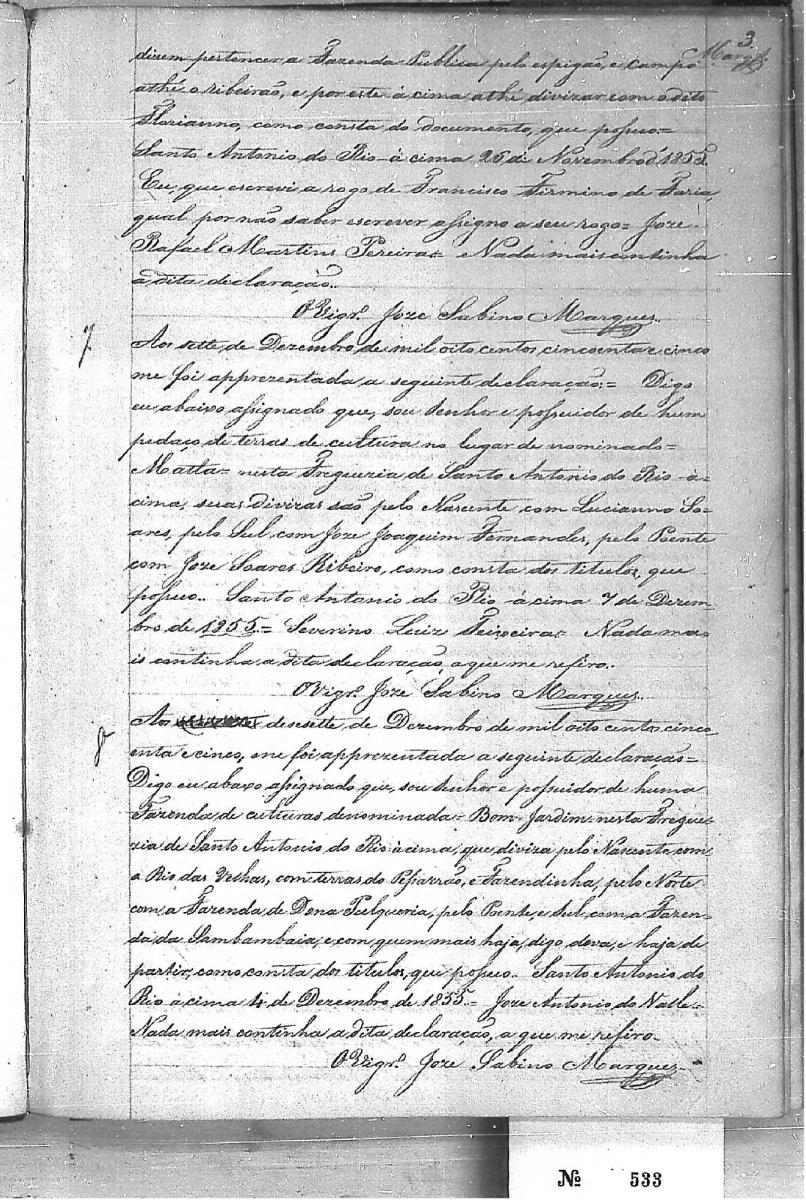 3.
Marq.s
dizem pertencer a Fazenda Publica pelo espigão, e campo
athé o ribeirão, e por este à cima athé divizar com o dito
Florianno, como consta do documento, que possuo=
Santo Antonio do Rio à cima 26 de Novembro d'1855.
Eu, que escrevi a rogo de Francisco Firmino de Faria,
qual por não saber escrever assigno a seu rogo= Joze
Rafael Martins Pereira= e Nada mais continha
a dita declaração..
O Vigr.º Joze Sabino Marques..
7
Aos sette, de Dezembro de mil oito centos, cincoenta e cinco
me foi apprezentada, a seguinte declaração:= Digo
eu abaixo assignado que, sou Senhor e possuidor de hum
pedaço de terras de cultura no lugar de nominado=
Matta= nesta Freguezia de Santo Antonio do Rio à-
cima, suas divizas são pelo Nascente com Lucianno So-
ares, pelo Sul com Joze Joaquim Fernandes, pelo Poente
com Joze Soares Ribeiro, como consta dos titulos, que
possuo.. Santo Antonio do Rio à cima 7 de Dezem-
bro de 1855.= Severino Luiz Teixeira= Nada ma-
is continha, a dita declaração, a que me refiro..
O Vigr.º Joze Sabino Marques..
8
Aos desesette, de Dezembro de mil oito centos, cinco-
enta e cinco, me foi, apprezentada a seguinte declaração=
Digo eu, abaxo assignado que, sou Senhor e possuidor de huma
Fazenda, de culturas denominada= Bom-Jardim= nesta Fregue-
zia de Santo Antonio do Rio à cima, que, diviza pelo Nascente, com
o Rio das Velhas, com terras do Pissarrão, e Fazendinha, pelo Norte
com, a Fazenda, de Dona Pulqueria, pelo Poente, e Sul, com a Fazen-
da, da Sambambaia, e com, quem mais haja, digo, deva, e haja de
partir, como consta, dos titulos, que possuo.. Santo Antonio do
Rio à cima 4 de Dezembro de 1855.= Joze Antonio do Valle=
Nada, mais continha a dita, declaração, a que me refiro.
O Vigr.º Joze Sabino Marques..
Nº 533